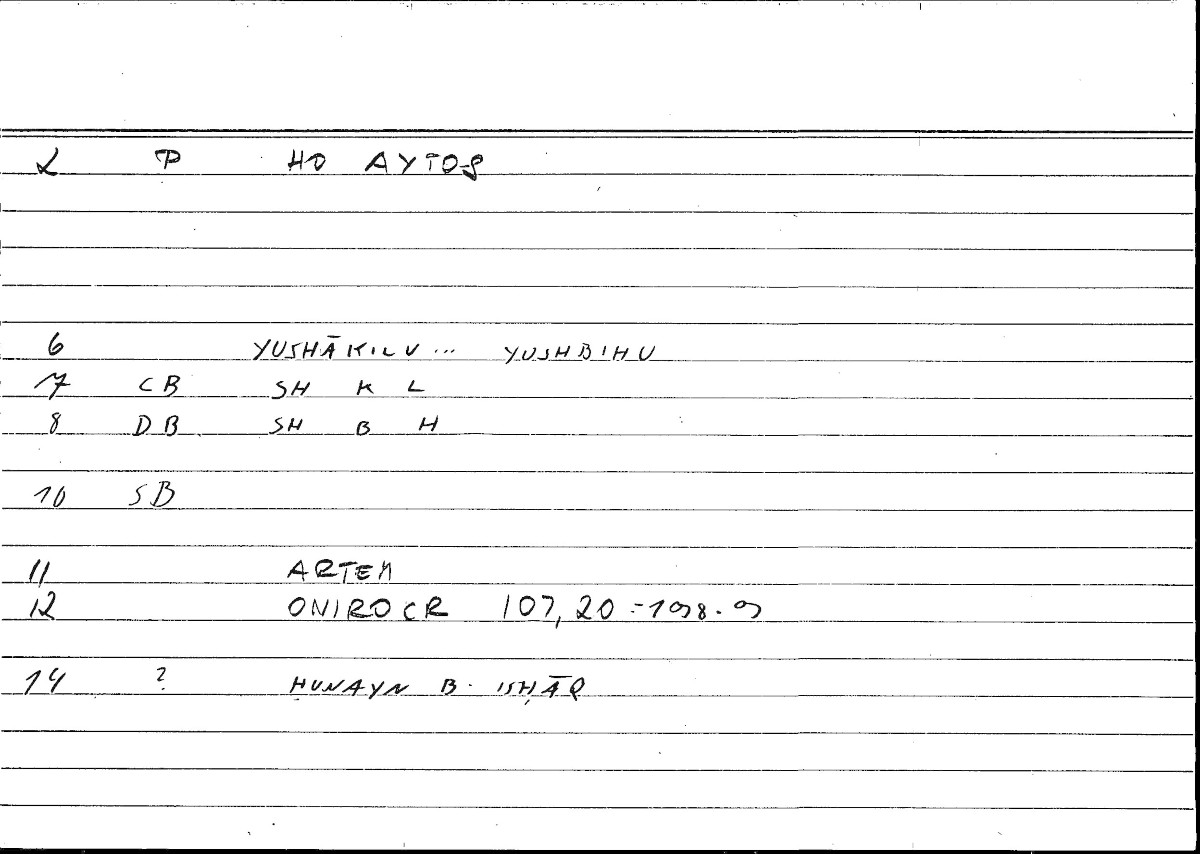 2 P HO AYTOS
6 YUSHĀKILU... YUSHBIHU
7 CB SH K L
8 DB SH B H
10 SB
11 ARTEM
12 ONIROCR 107, 20 = 198.9
14 ? ḤUNAYN B. ISḤĀQ